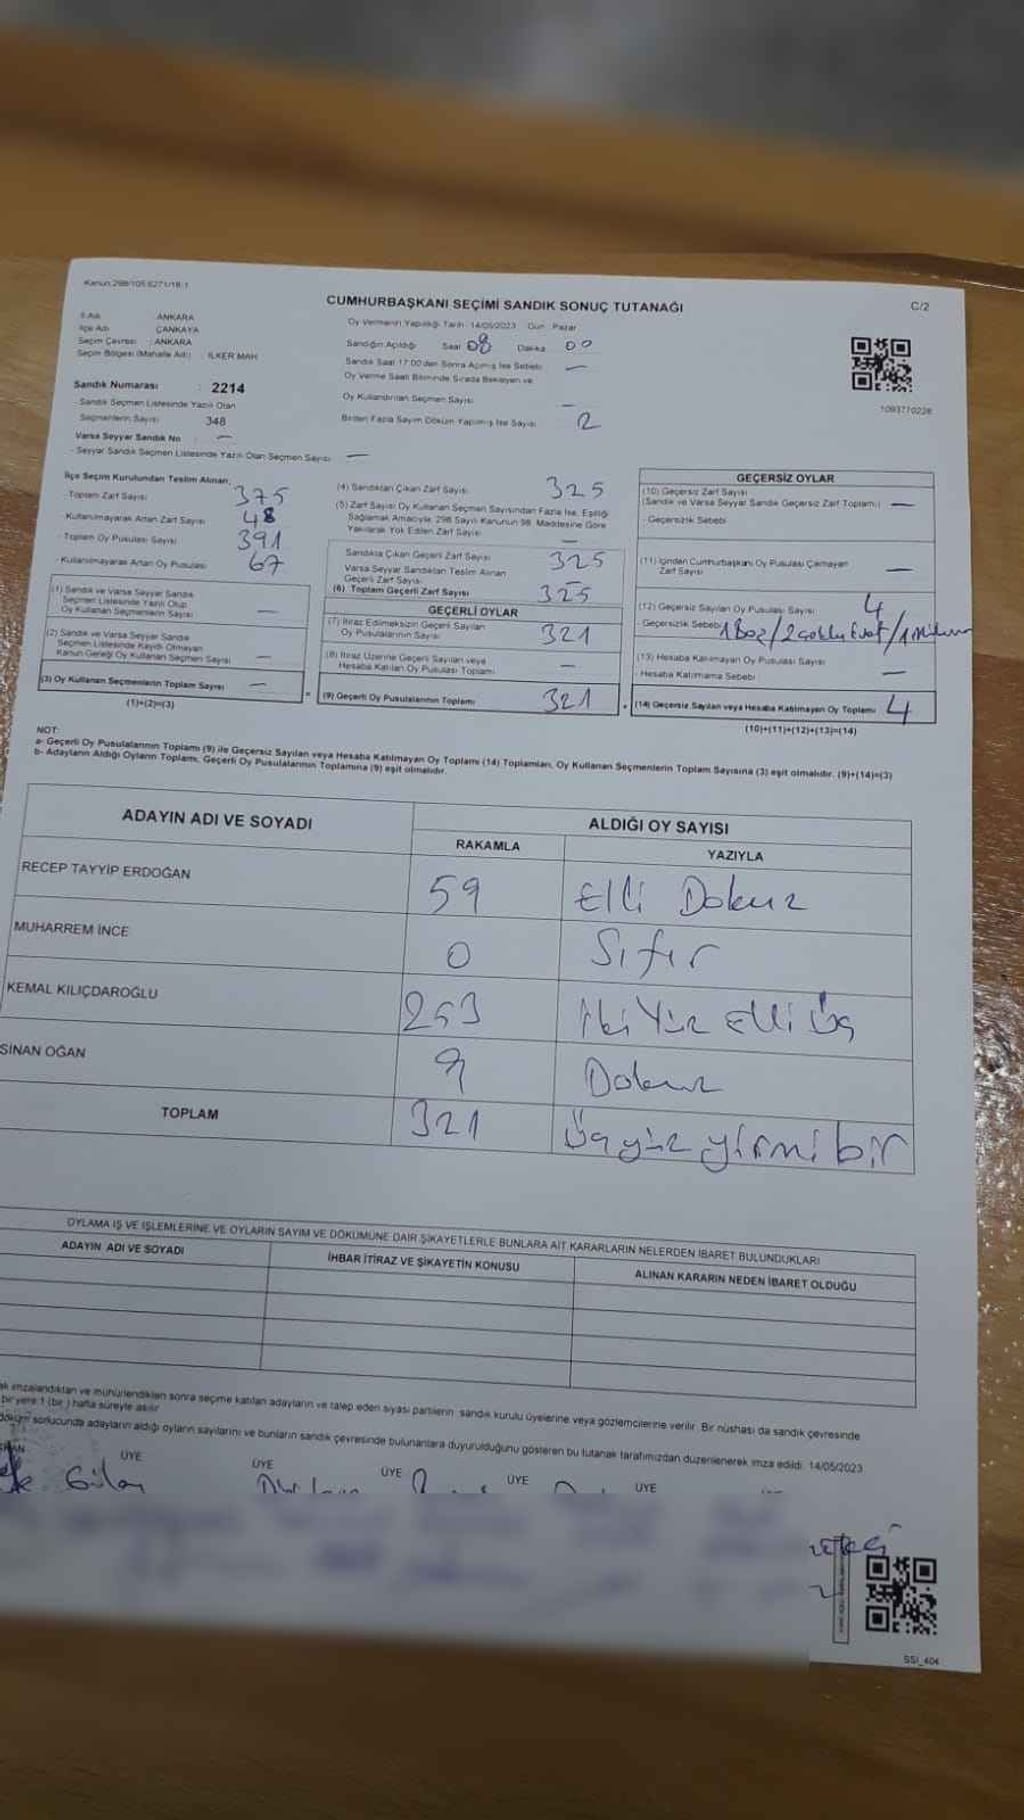 Kanun:298/105 6271/18:1
CUMHURBAŞKANI SEÇİMİ SANDIK SONUÇ TUTANAĞI
C/2
İl Adı ANKARA
İlçe Adı ÇANKAYA
Seçim Çevresi : ANKARA
Seçim Bölgesi (Mahalle Adı) : İLKER MAH
Sandık Numarası : 2214
- Sandık Seçmen Listesinde Yazılı Olan
Seçmenlerin Sayısı 348
Varsa Seyyar Sandık No —
- Seyyar Sandık Seçmen Listesinde Yazılı Olan Seçmen Sayısı —
Oy Vermenin Yapıldığı Tarih 14/05/2023 Gün Pazar
Sandığın Açıldığı Saat 08 Dakika 00
Sandık Saat 17:00'den Sonra Açılmış İse Sebebi —
Oy Verme Saati Bitiminde Sırada Bekleyen ve
Oy Kullandırılan Seçmen Sayısı —
Birden Fazla Sayım Döküm Yapılmış İse Sayısı 2
1093770226
İlçe Seçim Kurulundan Teslim Alınan;
- Toplam Zarf Sayısı 375
- Kullanılmayarak Artan Zarf Sayısı 48
- Toplam Oy Pusulası Sayısı 391
- Kullanılmayarak Artan Oy Pusulası 67
(1) Sandık ve Varsa Seyyar Sandık
Seçmen Listesinde Yazılı Olup
Oy Kullanan Seçmenlerin Sayısı —
(2) Sandık ve Varsa Seyyar Sandık
Seçmen Listesinde Kaydı Olmayan
Kanun Gereği Oy Kullanan Seçmen Sayısı —
(3) Oy Kullanan Seçmenlerin Toplam Sayısı —
(1)+(2)=(3)
(4) Sandıktan Çıkan Zarf Sayısı 325
(5) Zarf Sayısı Oy Kullanan Seçmen Sayısından Fazla İse, Eşitliği
Sağlamak Amacıyla, 298 Sayılı Kanunun 98. Maddesine Göre
Yakılarak Yok Edilen Zarf Sayısı —
Sandıkta Çıkan Geçerli Zarf Sayısı 325
Varsa Seyyar Sandıktan Teslim Alınan
Geçerli Zarf Sayısı
(6) Toplam Geçerli Zarf Sayısı 325
GEÇERLİ OYLAR
(7) İtiraz Edilmeksizin Geçerli Sayılan
Oy Pusulalarının Sayısı 321
(8) İtiraz Üzerine Geçerli Sayılan veya
Hesaba Katılan Oy Pusulası Toplamı —
(9) Geçerli Oy Pusulalarının Toplamı 321
GEÇERSİZ OYLAR
(10) Geçersiz Zarf Sayısı
(Sandık ve Varsa Seyyar Sandık Geçersiz Zarf Toplamı) —
- Geçersizlik Sebebi
(11) İçinden Cumhurbaşkanı Oy Pusulası Çıkmayan
Zarf Sayısı —
(12) Geçersiz Sayılan Oy Pusulası Sayısı 4
- Geçersizlik Sebebi
(13) Hesaba Katılmayan Oy Pusulası Sayısı
- Hesaba Katılmama Sebebi —
(14) Geçersiz Sayılan veya Hesaba Katılmayan Oy Toplamı 4
(10)+(11)+(12)+(13)=(14)
NOT:
a- Geçerli Oy Pusulalarının Toplamı (9) ile Geçersiz Sayılan veya Hesaba Katılmayan Oy Toplamı (14) Toplamları, Oy Kullanan Seçmenlerin Toplam Sayısına (3) eşit olmalıdır. (9)+(14)=(3)
b- Adayların Aldığı Oyların Toplamı, Geçerli Oy Pusulalarının Toplamına (9) eşit olmalıdır.
ADAYIN ADI VE SOYADI ALDIĞI OY SAYISI
RAKAMLA YAZIYLA
RECEP TAYYİP ERDOĞAN 59 Elli Dokuz
MUHARREM İNCE 0 Sıfır
KEMAL KILIÇDAROĞLU 253 İki Yüz Elli Üç
SİNAN OĞAN 9 Dokuz
TOPLAM 321 Üçyüz yirmi bir
OYLAMA İŞ VE İŞLEMLERİNE VE OYLARIN SAYIM VE DÖKÜMÜNE DAİR ŞİKAYETLERLE BUNLARA AİT KARARLARIN NELERDEN İBARET BULUNDUKLARI
ADAYIN ADI VE SOYADI İHBAR İTİRAZ VE ŞİKAYETİN KONUSU ALINAN KARARIN NEDEN İBARET OLDUĞU
imzalandıktan ve mühürlendikten sonra seçime katılan adayların ve talep eden siyasi partilerin sandık kurulu üyelerine veya gözlemcilerine verilir. Bir nüshası da sandık çevresinde
bir yere 1 (bir) hafta süreyle asılır
döküm sonucunda adayların aldığı oyların sayılarını ve bunların sandık çevresinde bulunanlara duyurulduğunu gösteren bu tutanak tarafımızdan düzenlenerek imza edildi. 14/05/2023
ÜYE ÜYE ÜYE ÜYE ÜYE
SSI_404